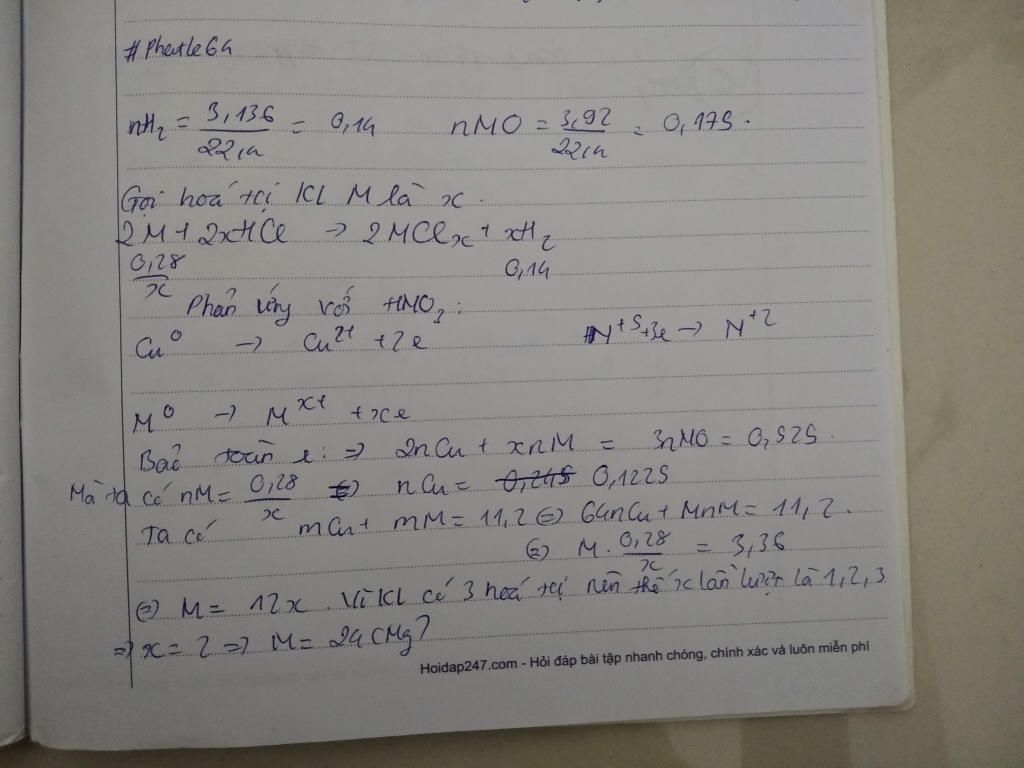 #Phatle64
nH₂ = 3,136/22,4 = 0,14 nMO = 3,92/22,4 = 0,175.
Gọi hoá trị KL M là x.
2M + 2xHCl → 2MClₓ + xH₂
0,28/x 0,14
Phản ứng với HNO₃:
Cu⁰ → Cu²⁺ + 2e N⁺⁵+3e → N⁺²
M⁰ → Mˣ⁺ + xe
Bảo toàn e: ⇒ 2nCu + xnM = 3nMO = 0,525.
Mà ta có nM = 0,28/x ⇔ nCu = 0,245 0,1225
Ta có mCu + mM = 11,2 ⇔ 64nCu + MnM = 11,2.
⇔ M. 0,28/x = 3,36
⇔ M = 12x. Vì KL có 3 hoá trị nên thế x lần lượt là 1, 2, 3
⇒ x = 2 ⇒ M = 24 (Mg)
Hoidap247.com - Hỏi đáp bài tập nhanh chóng, chính xác và luôn miễn phí